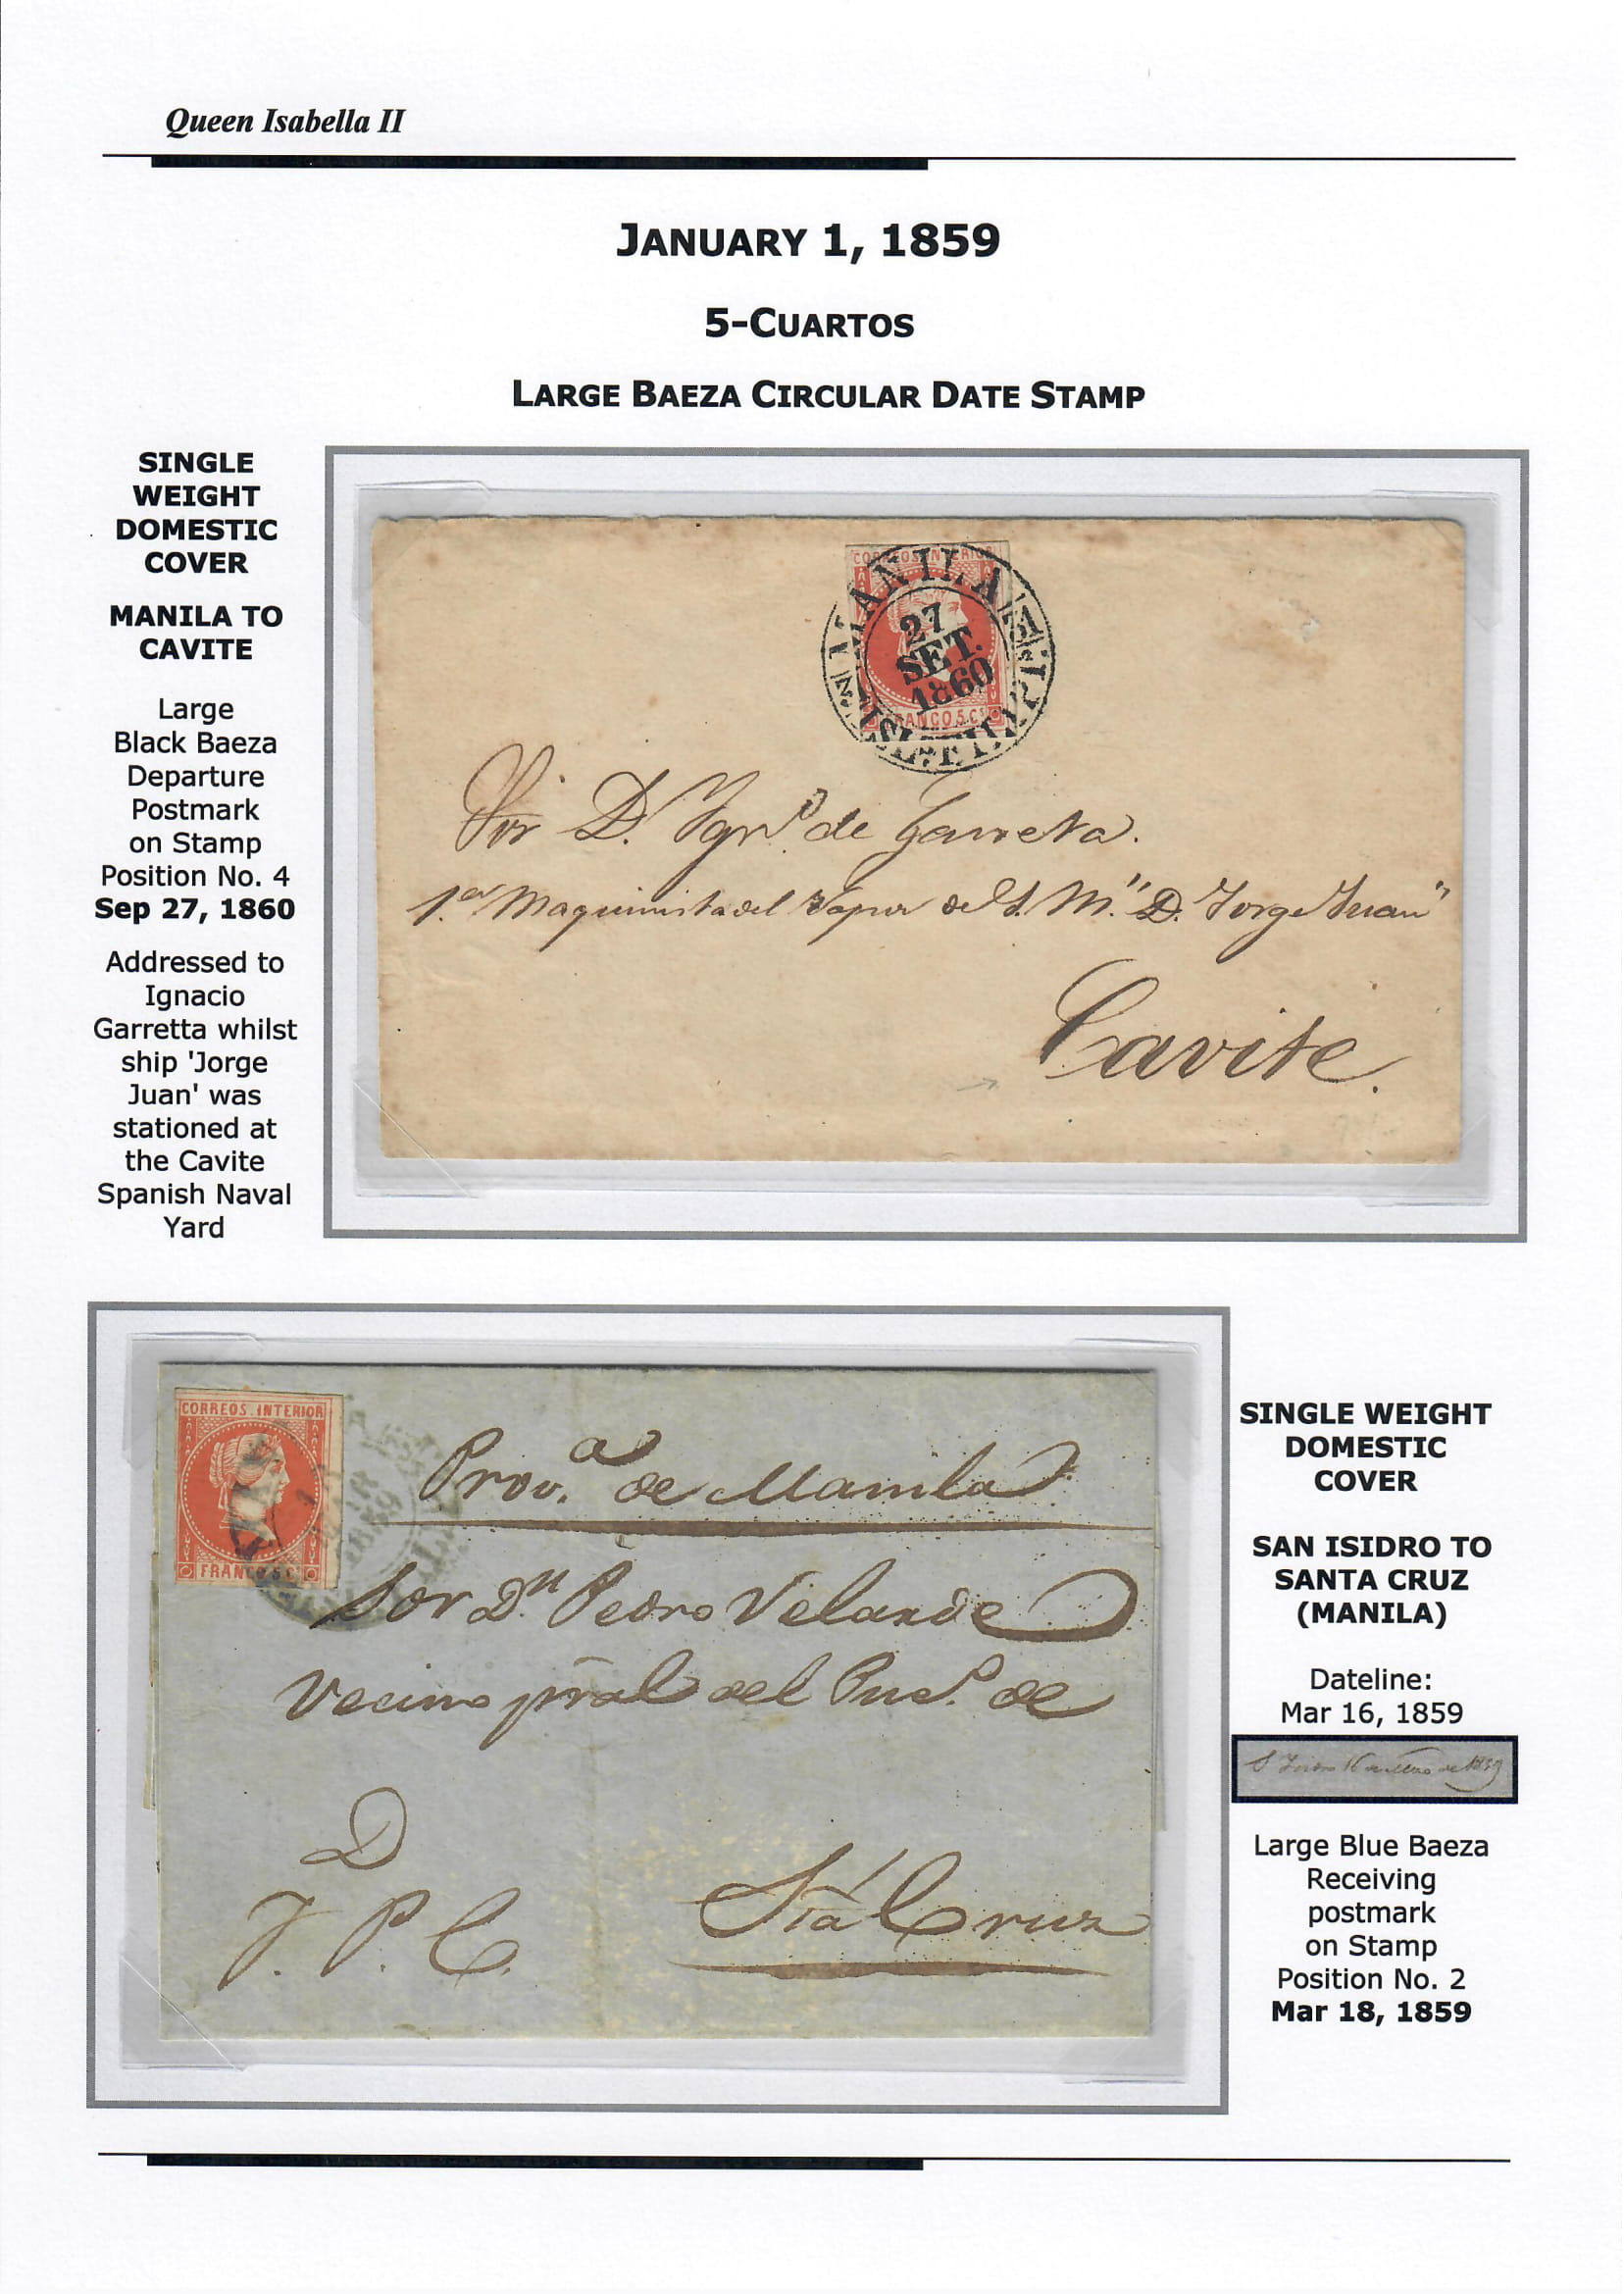 Queen Isabella II
JANUARY 1, 1859
5-CUARTOS
LARGE BAEZA CIRCULAR DATE STAMP
SINGLE
WEIGHT
DOMESTIC
COVER
MANILA TO
CAVITE
Large
Black Baeza
Departure
Postmark
on Stamp
Position No. 4
Sep 27, 1860
Addressed to
Ignacio
Garretta whilst
ship 'Jorge
Juan' was
stationed at
the Cavite
Spanish Naval
Yard
CORREOS INTERIOR
MANILA
27
SET.
1860
FRANCO 5 Cs
Sor D. Ygno de Garreta.
1.er Maquinista del Vapor de S. M. "D. Jorge Juan"
Cavite.
CORREOS INTERIOR
FRANCO 5 Cs
1859
Prov.a de Manila
Sor Dn Pedro Velarde
Vecino pral del Pueo. de
D
J. P. C.
Sta Cruz
SINGLE WEIGHT
DOMESTIC
COVER
SAN ISIDRO TO
SANTA CRUZ
(MANILA)
Dateline:
Mar 16, 1859
S Isidro 16 de Marzo de 1859
Large Blue Baeza
Receiving
postmark
on Stamp
Position No. 2
Mar 18, 1859